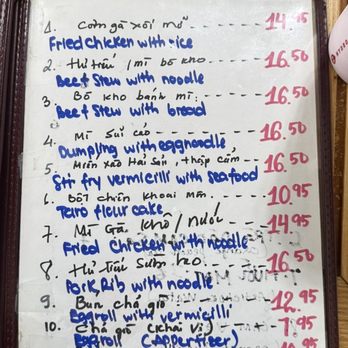 1. Cơm gà xối mỡ --- 14.95
Fried chicken with rice
2. Hủ tiếu / mì bò kho --- 16.50
Beef stew with noodle
3. Bò kho bánh mì. --- 16.50
Beef stew with bread
4. Mì sủi cảo --- 16.50
Dumpling with eggnoodle
5. Miến xào Hải sản, thập cẩm --- 16.50
Stir fry vermicelli with seafood
6. Bột chiên khoai môn. 10.95
Taro fleur cake
7. Mì Gà khô / nước --- 14.95
Fried chicken with noodle
8. Hủ Tiếu Sườn heo --- 16.50
Pork Rib with noodle
9. Bún chả giò --- 12.95
Eggroll with vermicilli
10. Chả giò (khai vị) --- 7.95
Eggroll (Appertizer)